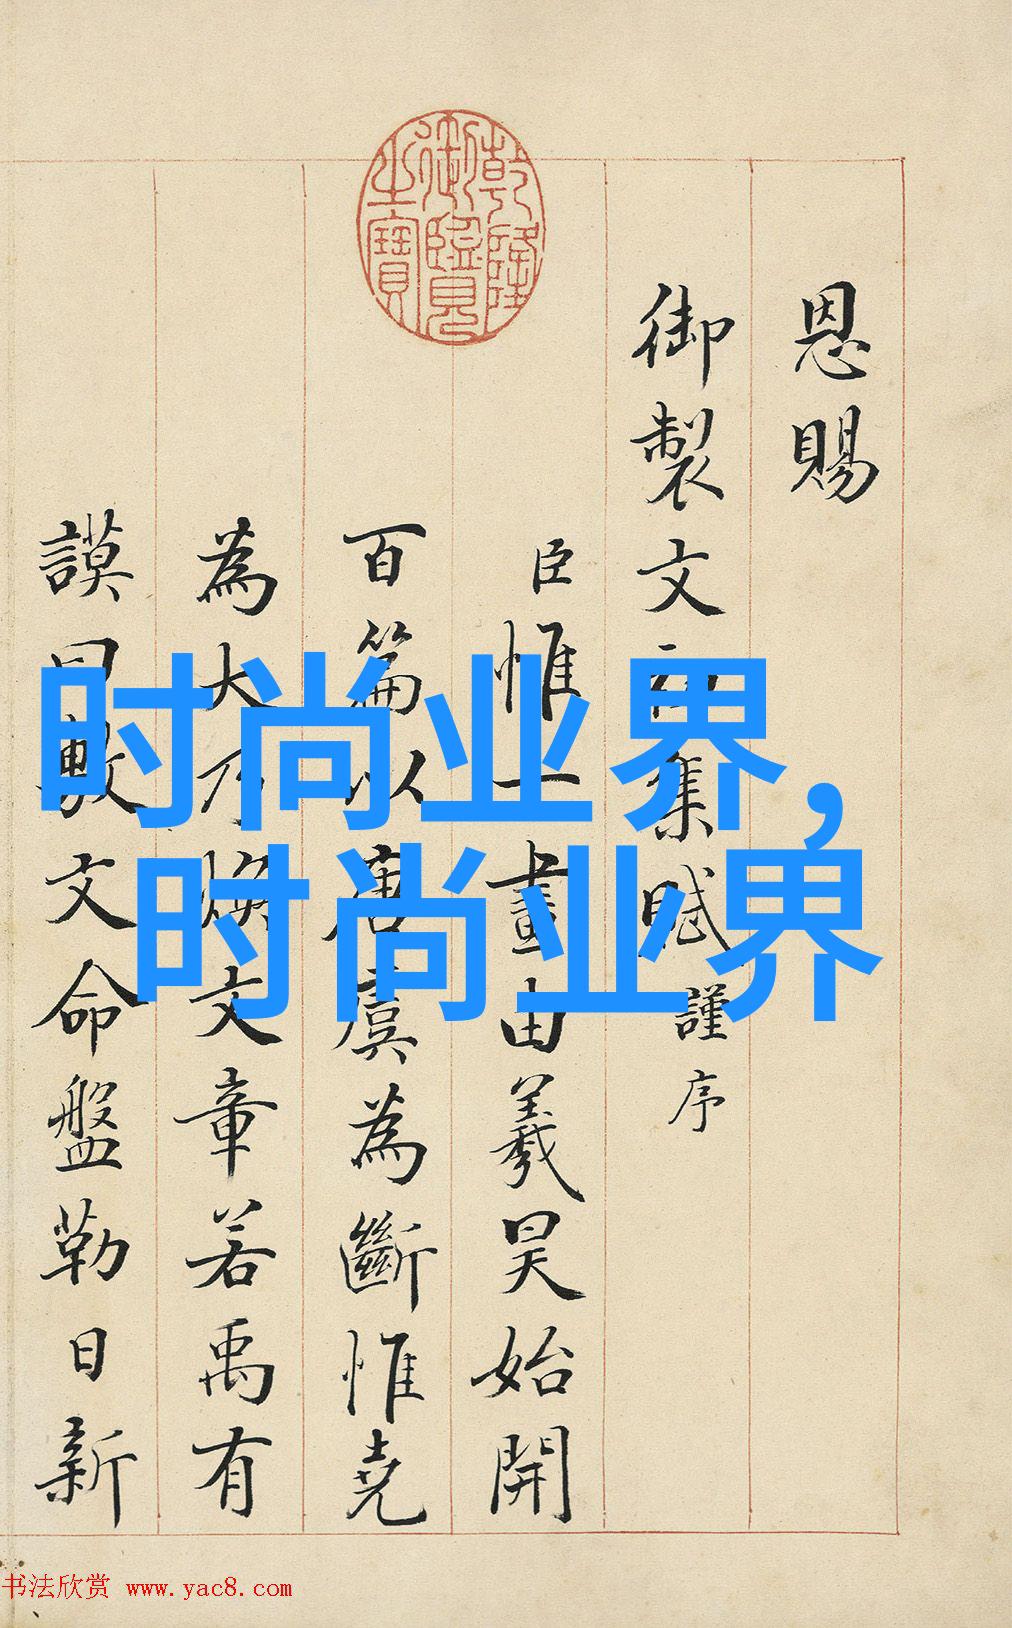 恩賜
御製文初集賦謹序
臣惟一畫由羲昊始開
百篇以唐虞為斷惟堯
為大乃煥文章若禹有
謨曰敷文命盤勒日新
乾隆
御覽
之寶
时尚业界，
时尚业界
书法欣赏 www.yac8.com